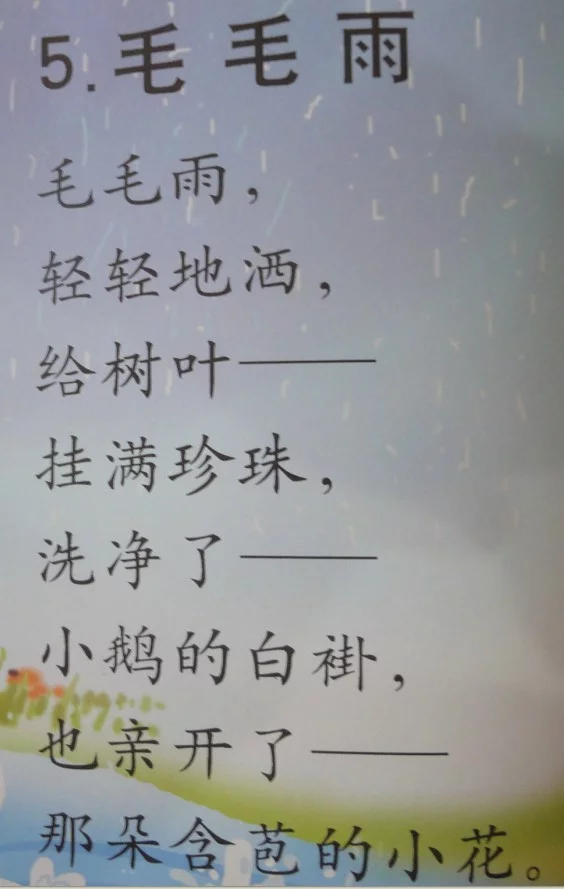 5.毛毛雨
毛毛雨，
轻轻地洒，
给树叶——
挂满珍珠，
洗净了——
小鹅的白褂，
也亲开了——
那朵含苞的小花。